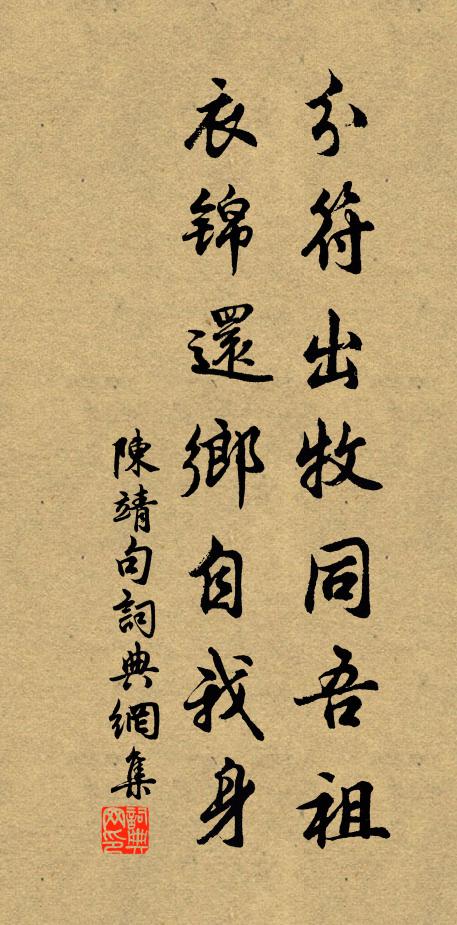 分符出牧同吾祖
衣锦還鄉自我身
陳靖句詞典網集
詞典网印